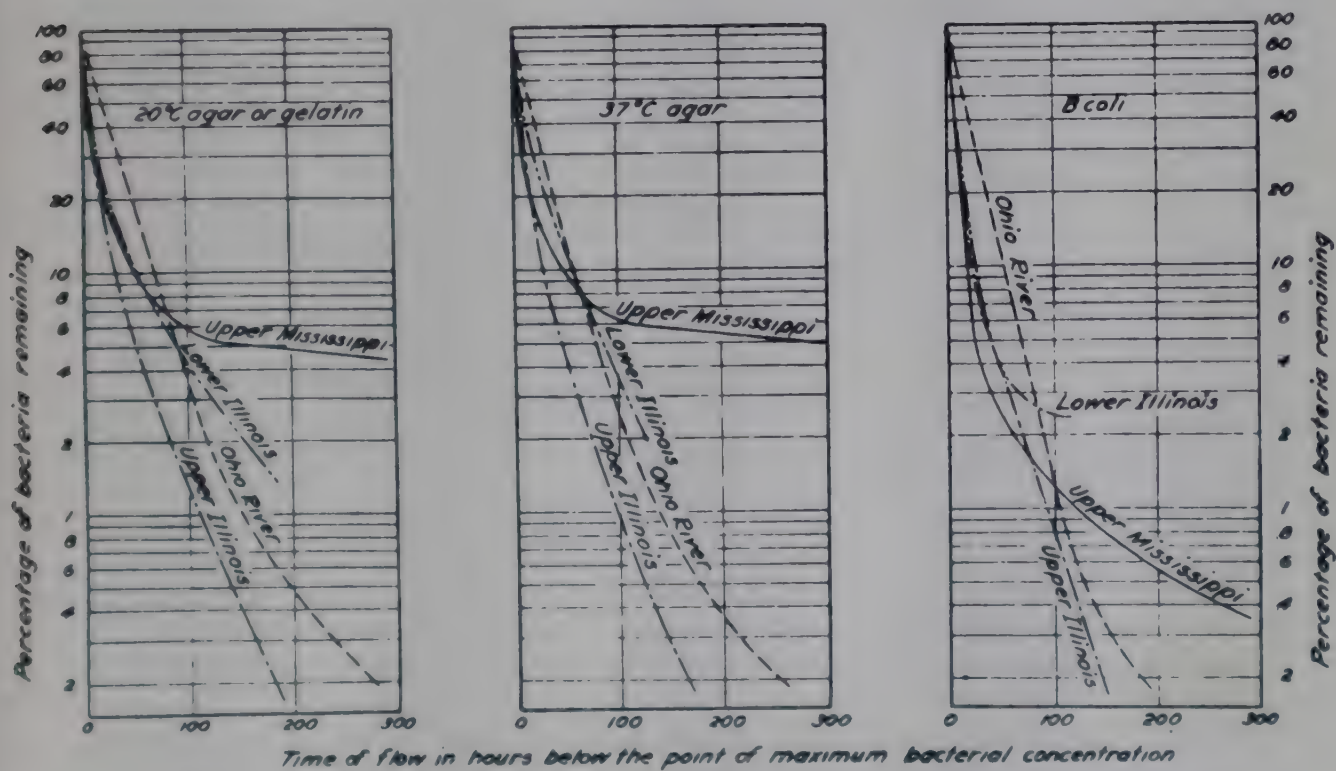 Percentage of bacteria remaining
100
80
60
40
20
10
8
6
4
2
1
8
6
4
2
20°C agar or gelatin
Upper Mississippi
Lower Illinois
Ohio River
Upper Illinois
0 100 200 300
37°C agar
Upper Mississippi
Lower Illinois
Ohio River
Upper Illinois
0 100 200 300
B coli
Ohio River
Lower Illinois
Upper Mississippi
Upper Illinois
0 100 200 300
100
80
60
40
20
10
8
6
4
2
1
8
6
4
2
Percentage of bacteria remaining
Time of flow in hours below the point of maximum bacterial concentration